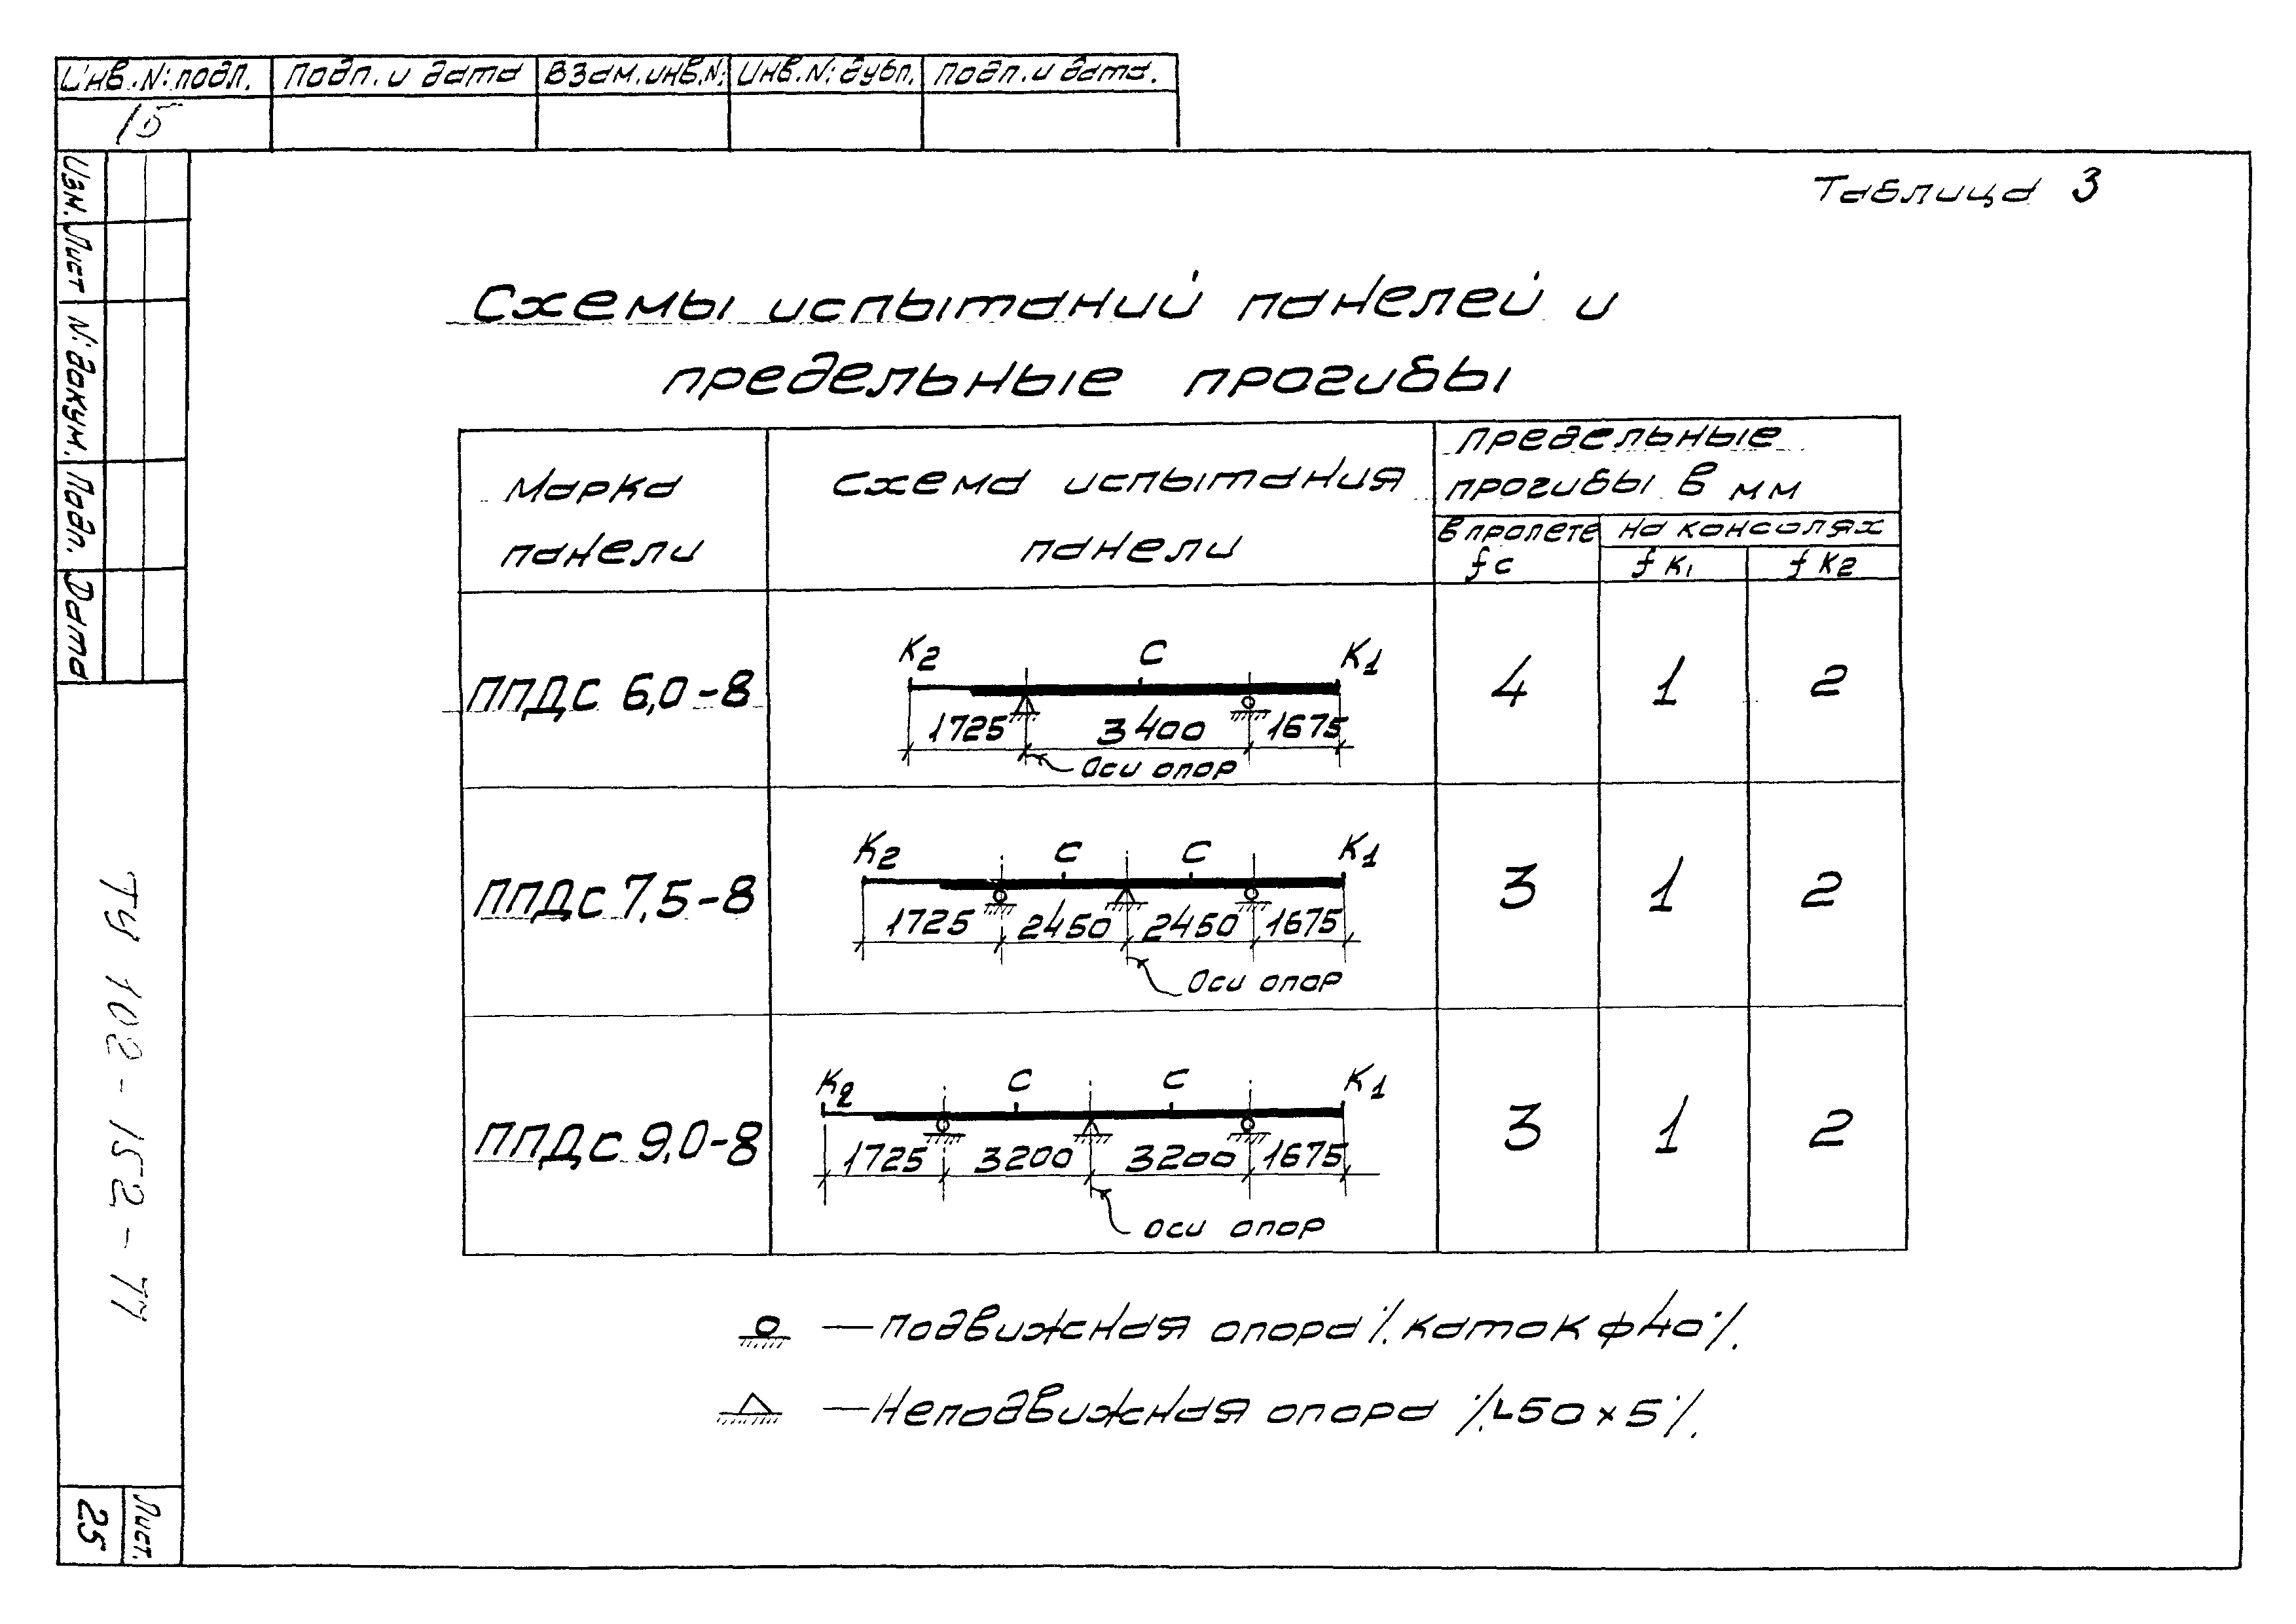 Инв.N:подл. Подп. и дата Взам.инв.N: Инв.N: дубл. Подп. и дата.
15
Изм. Лист N: докум. Подп. Дата
Таблица 3
Схемы испытаний панелей и
предельные прогибы
Марка панели
схема испытания панели
предельные
прогибы в мм
в пролете на консолях
fc fк1 fк2
ППДС 6,0-8
К2 С К1
1725 3400 1675
Оси опор
4 1 2
ППДС 7,5-8
К2 С С К1
1725 2450 2450 1675
Оси опор
3 1 2
ППДС 9,0-8
К2 С С К1
1725 3200 3200 1675
Оси опор
3 1 2
— подвижная опора /. каток ф40 /.
— Неподвижная опора /.L50×5 /.
ТУ 102-152-77
Лист.
25